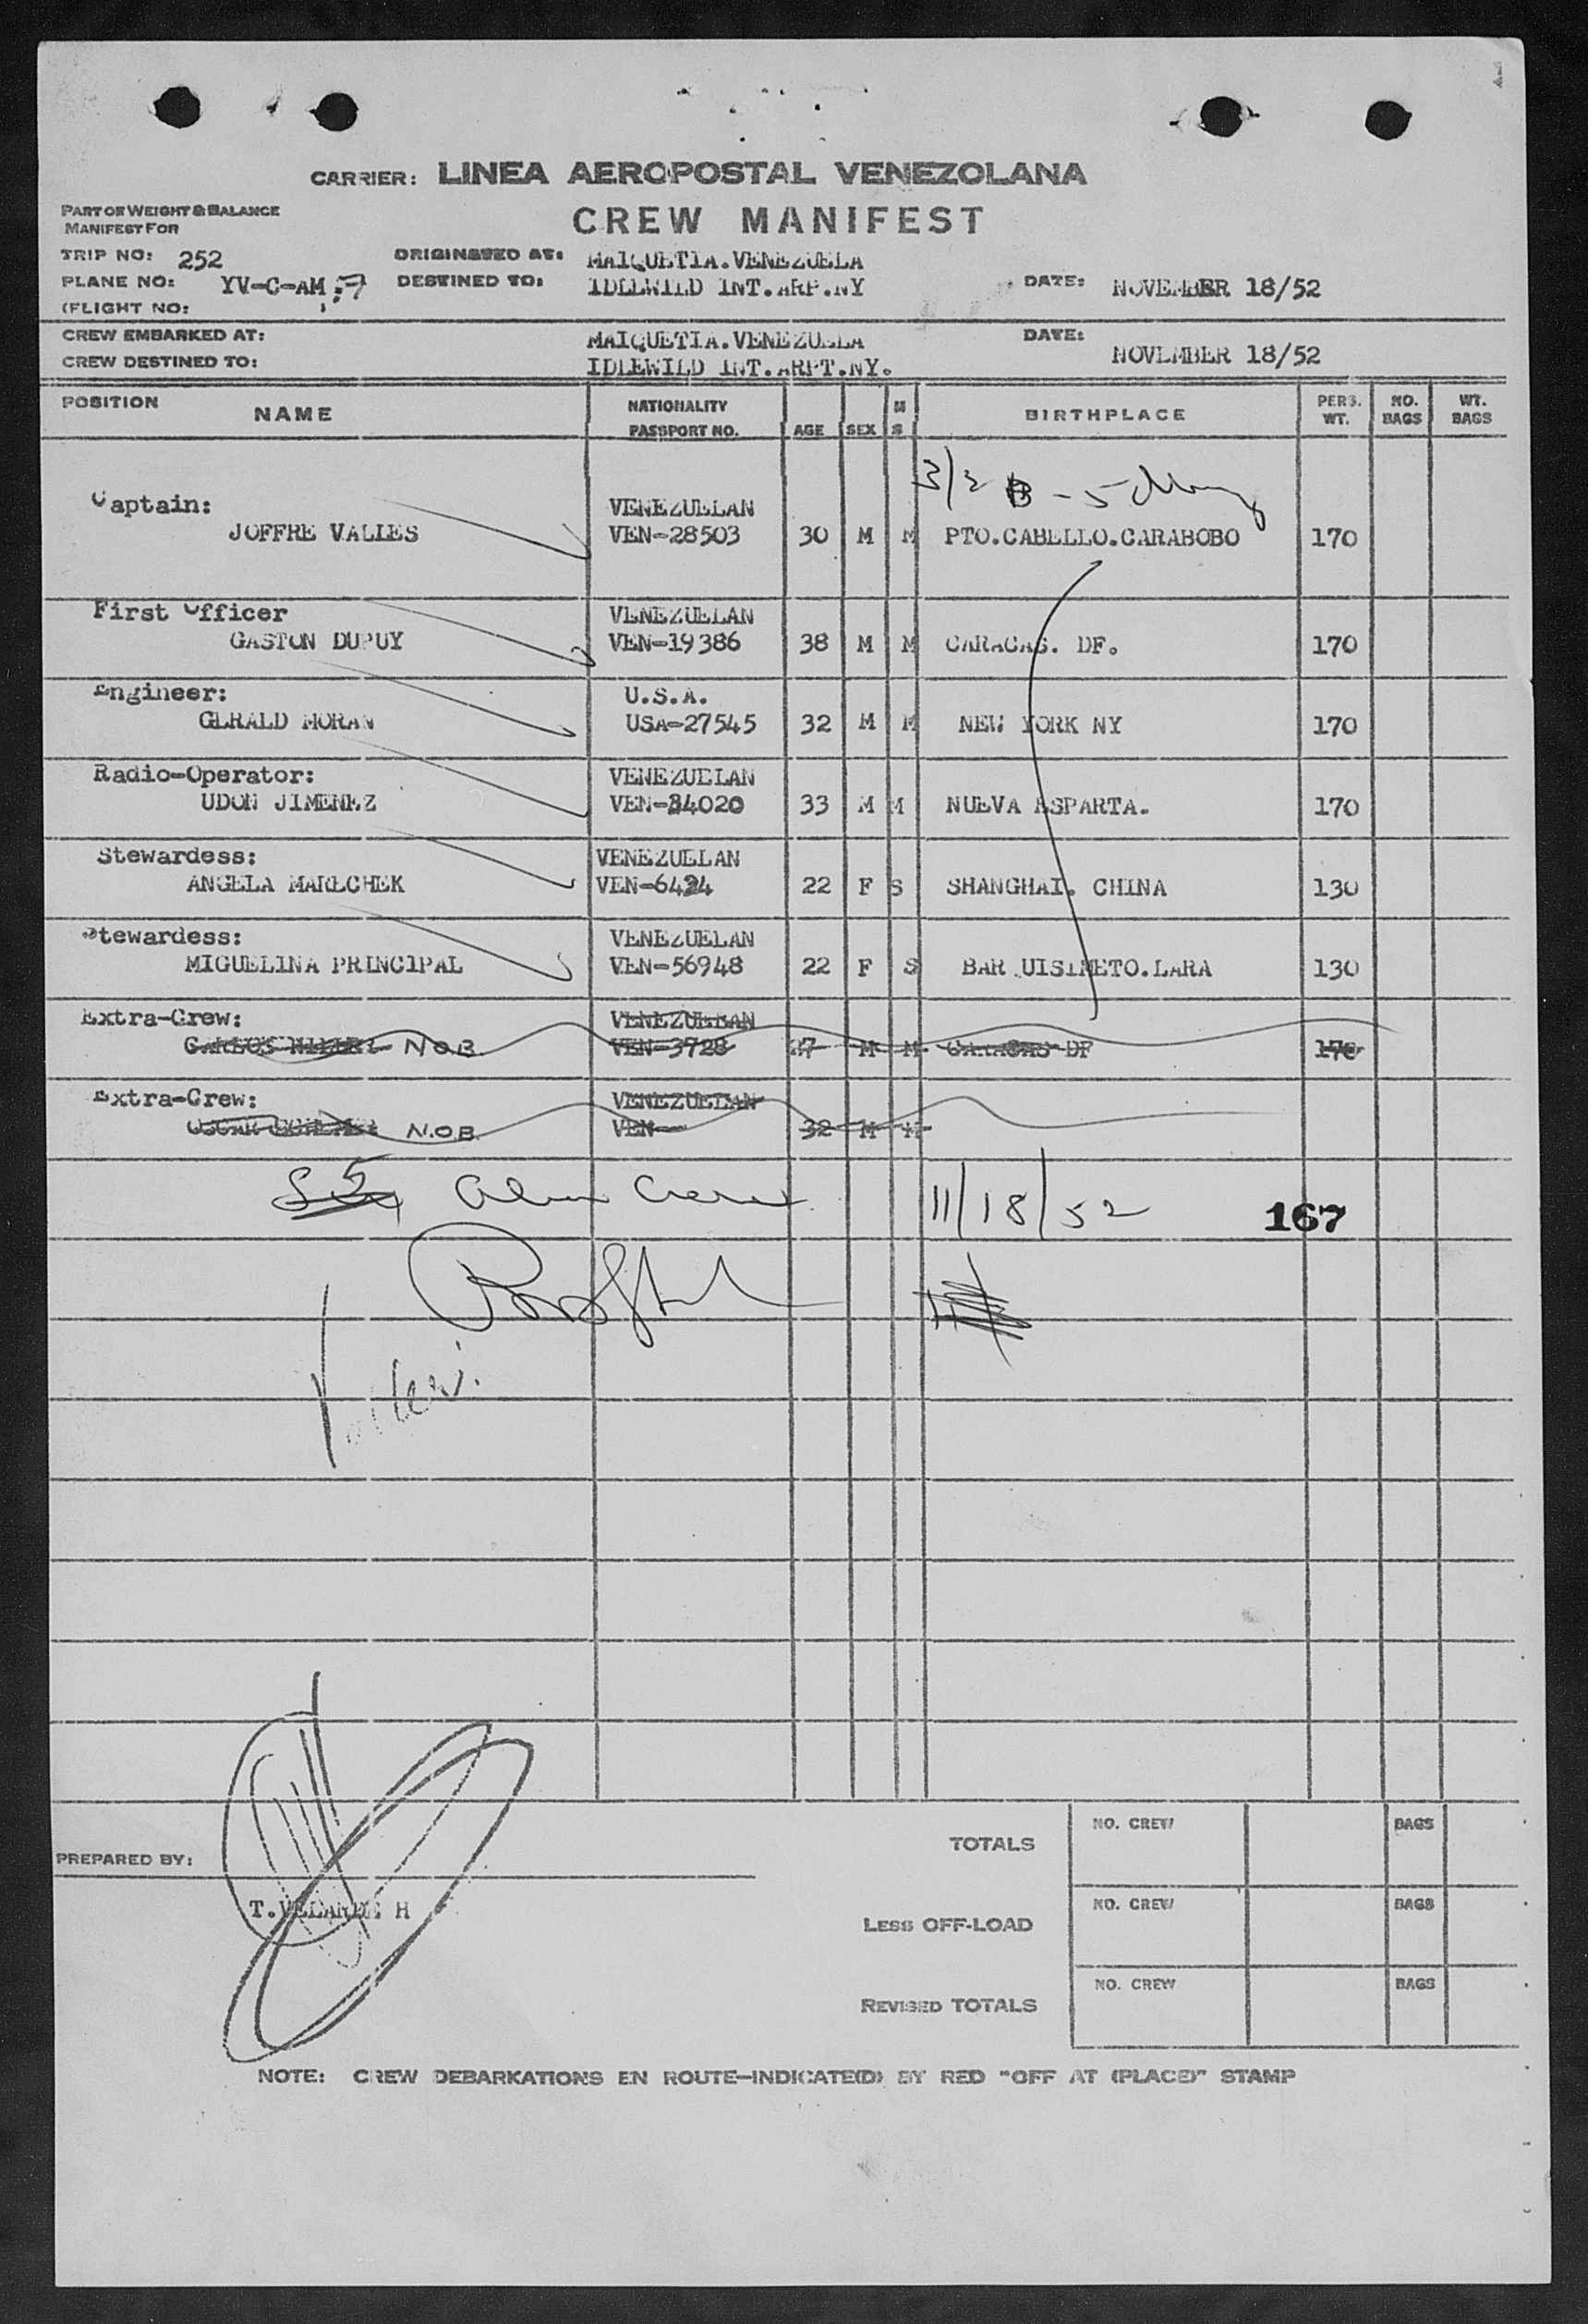 CARRIER: LINEA AEROPOSTAL VENEZOLANA
PART OR WEIGHT & BALANCE
MANIFEST FOR
CREW MANIFEST
TRIP NO: 252 ORIGINATED AT: MAIQUETIA.VENEZUELA
PLANE NO: YV-C-AM DESTINED TO: IDLEWILD INT.ARP.NY DATE: NOVEMBER 18/52
(FLIGHT NO:
CREW EMBARKED AT: MAIQUETIA.VENEZUELA DATE:
CREW DESTINED TO: IDLEWILD INT.ARPT.NY. NOVEMBER 18/52
POSITION NAME NATIONALITY PASSPORT NO. AGE SEX M S BIRTHPLACE PERS. WT. NO. BAGS WT. BAGS
Captain: VENEZUELAN
JOFFRE VALLES VEN-28503 30 M M PTO.CABELLO.CARABOBO 170
First Officer VENEZUELAN
GASTON DUPUY VEN-19386 38 M M CARACAS. DF. 170
Engineer: U.S.A.
GERALD MORAN USA-27545 32 M M NEW YORK NY 170
Radio-Operator: VENEZUELAN
UDON JIMENEZ VEN-34020 33 M M NUEVA ESPARTA. 170
Stewardess: VENEZUELAN
ANGELA MARECHEK VEN-6424 22 F S SHANGHAI. CHINA 130
Stewardess: VENEZUELAN
MIGUELINA PRINCIPAL VEN-56948 22 F S BAR UISIMETO.LARA 130
Extra-Crew: VENEZUELAN
CARLOS N.O.B. VEN-3728 27 M M CARACAS DF 170
Extra-Crew: VENEZUELAN
N.O.B. VEN- 32 M M
5 Alien Crew 11/18/52 167
PREPARED BY:
T.VELARDE H
TOTALS NO. CREW BAGS
LESS OFF-LOAD NO. CREW BAGS
REVISED TOTALS NO. CREW BAGS
NOTE: CREW DEBARKATIONS EN ROUTE-INDICATE(D) BY RED "OFF AT (PLACE)" STAMP